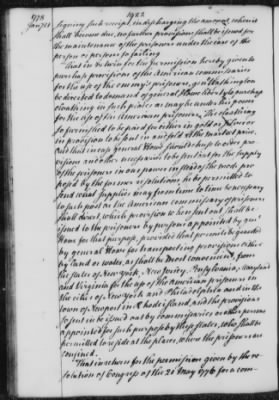 1778 1922
Jany 21
signing such receipt, in discharging the amount, wherein
shall become due, no further provisions shall be issued for
the maintenance of the prisoners under the care of the
person or persons so failing.
That in return for the permission hereby given to
purchase provisions of the American commissaries
for the use of the enemy's prisoners, gen Washington
be directed to demand of general Howe liberty to purchase
cloathing in such places as may be under his power
for the use of the American prisoners, The cloathing
so furnished to be paid for either in gold or silver or
in provision to be fixed in and at the market price.
And that in case general Howe should refuse to order pro-
visions and other necessaries to be provided for the supply
of the prisoners in our power instead of the mode pro-
posed by the foregoing resolutions, he be permitted to
send what supplies may from time to time be necessary
to such post as the American commissary of prisoners
shall direct, which provision to be sent out shall be
issued to the prisoners by persons appointed by genl
Howe for that purpose, provided that permit be granted
by general Howe for transporting provisions either
by land or water, as shall be most convenient, from
the states of New York, New Jersey, Pensylvania, Maryland
and Virginia for the use of the American prisoners in
the cities of New York and Philadelphia and in the
town of Newport in Rhode island, and the provisions
so sent in be issued out by commissaries or other persons
appointed for such purpose by these states, who shall be
permitted to reside at the places, where the prisoners are
confined.
That in return for the permission given by the re-
solution of Congress of the 20 May 1776 for a com-